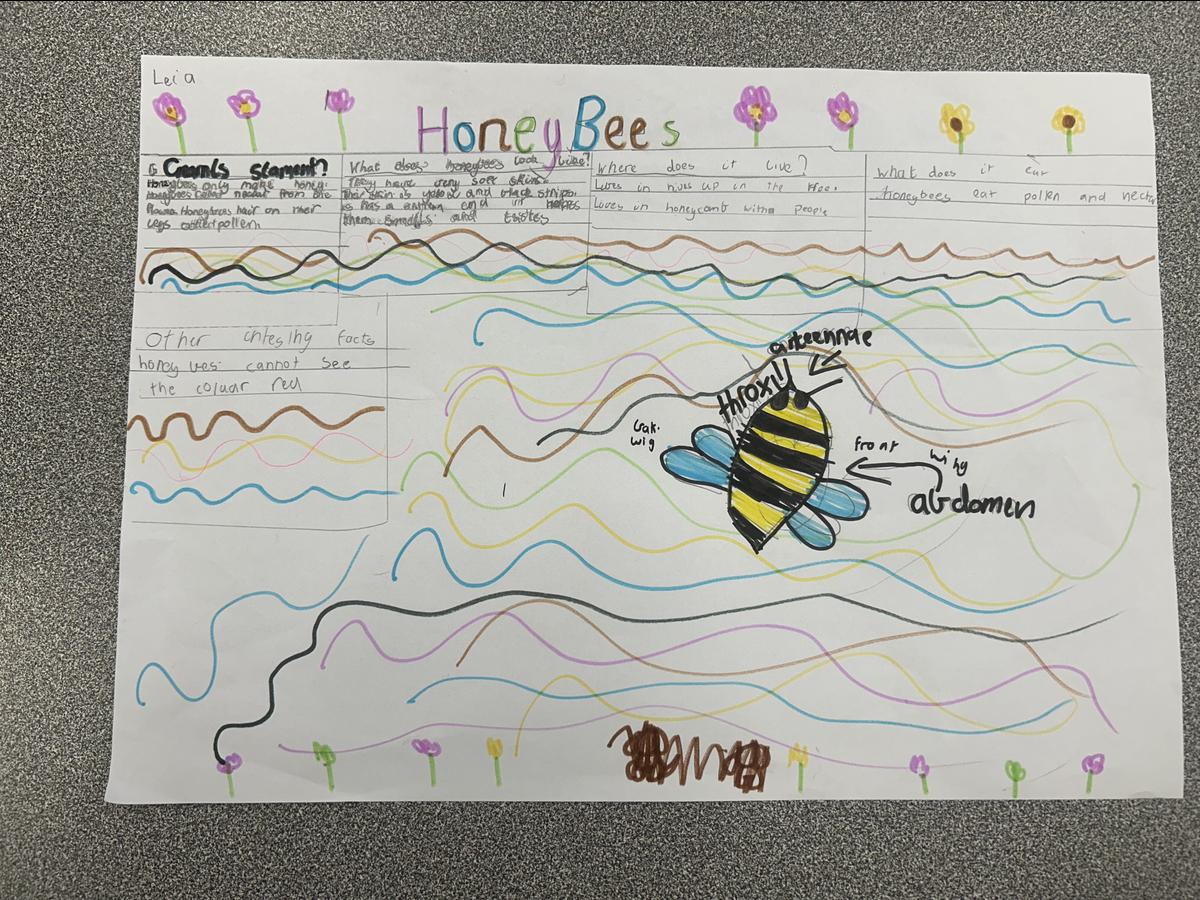 Leia
HoneyBees
G Cearnls Stament?
Honeybees only make honey.
Honeybees nectar from the
flower Honeybees hair on their
Legs pollem
What does honeybees look like?
They have very soft skins
Their skin is yellow and black strips.
is has a antinn and it helpes
them smells and tastes
Where does it live?
Lives in hives up in the tree.
Loves in honeycomb witha people
What does it eat
honeybees eat pollen and necta
Other intesing facts
honey ves cannot see
the colour red
anteennae
throx
bak
wig
Front
wing
abdomen